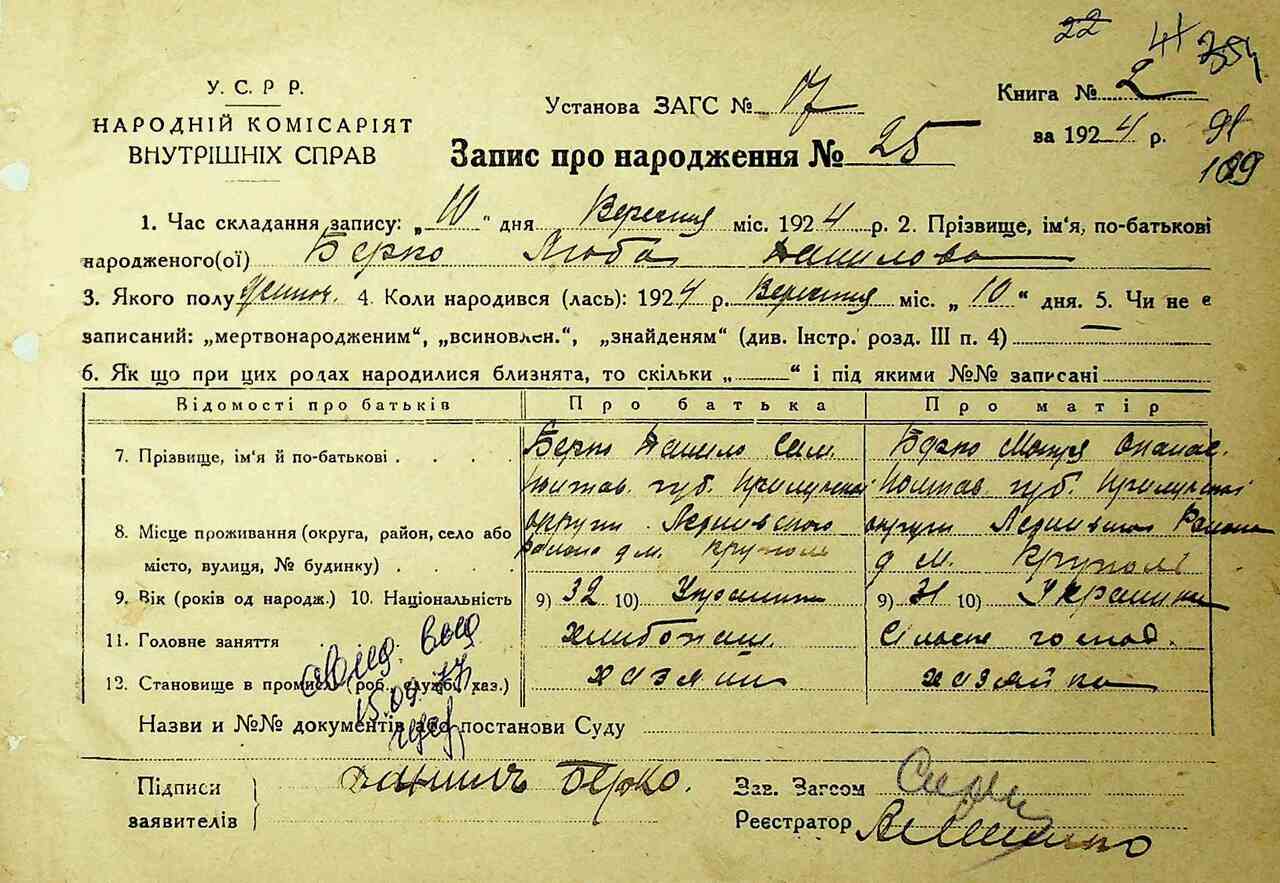 22
41
У. С. Р Р.
НАРОДНІЙ КОМІСАРІЯТ
ВНУТРІШНІХ СПРАВ
Установа ЗАГС № 17
Книга № 2
за 1924 р.
91
109
Запис про народження № 25
1. Час складання запису: „10" дня Вересня міс. 1924 р. 2. Прізвище, ім'я, по-батькові
народженого(ої) Берко Люба Данилова
3. Якого полу жіноч. 4. Коли народився (лась): 1924 р. Вересня міс. „10" дня. 5. Чи не є
записаний: „мертвонародженим", „всиновлен.", „знайденям" (див. Інстр. розд. III п. 4) —
6. Як що при цих родах народилися близнята, то скільки „ " і під якими №№ записані
Відомості про батьків Про батька Про матір
7. Прізвище, ім'я й по-батькові . . . . Берко Данило Сам. Берко Мотря Опанас.
Полтав. губ. Прилуцкої Полтав. губ. Прилуцкої
8. Місце проживання (округа, район, село або округи округи Района
місто, вулиця, № будинку) . . . . района д м. Круполі д м. Круполі
9. Вік (років од народж.) 10. Національність 9) 32 10) 9) 31 10) Українка
11. Головне заняття хлибопаш. господ.
12. Становище в промисл. (роб., службі, хаз.) хазяин хазяйка
15.09.77
Назви и №№ документів або постанови Суду
Підписи
заявителів
Данилъ Берко.
Зав. Загсом
Реєстратор